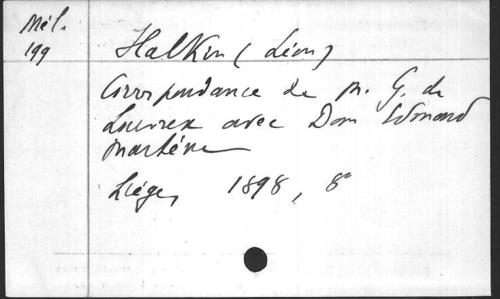 Mél.
199
Halkin (Léon)
Correspondance de M. G. de
Louvrex avec Dom Edmond
Martène
Liége, 1898, 8°